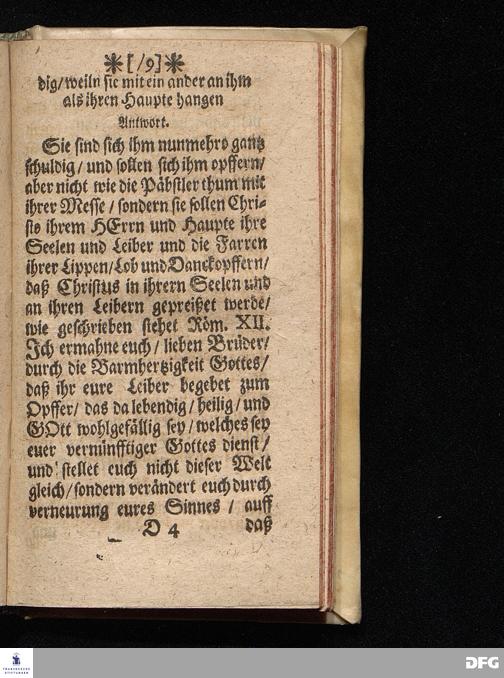 ✻[/9]✻
dig/weiln sie mit ein ander an ihm
als ihren Haupte hangen
Antwort.
Sie sind sich ihm nunmehro gantz
schuldig / und sollen sich ihm opffern/
aber nicht wie die Päbstler thum mit
ihrer Messe / sondern sie sollen Chri-
sto ihrem HErrn und Haupte ihre
Seelen und Leiber und die Farren
ihrer Lippen/Lob und Danckopffern/
daß Christus in ihrern Seelen und
an ihren Leibern gepreißet werde/
wie geschrieben stehet Röm. XII.
Jch ermahne euch / lieben Brüder/
durch die Barmhertzigkeit Gottes/
daß ihr eure Leiber begebet zum
Opffer / das da lebendig / heilig / und
GOtt wohlgefällig sey / welches sey
euer vernünfftiger Gottes dienst/
und stellet euch nicht dieser Welt
gleich / sondern verändert euch durch
verneurung eures Sinnes / auff
D 4 daß
FRANCKESCHE
STIFTUNGEN
DFG